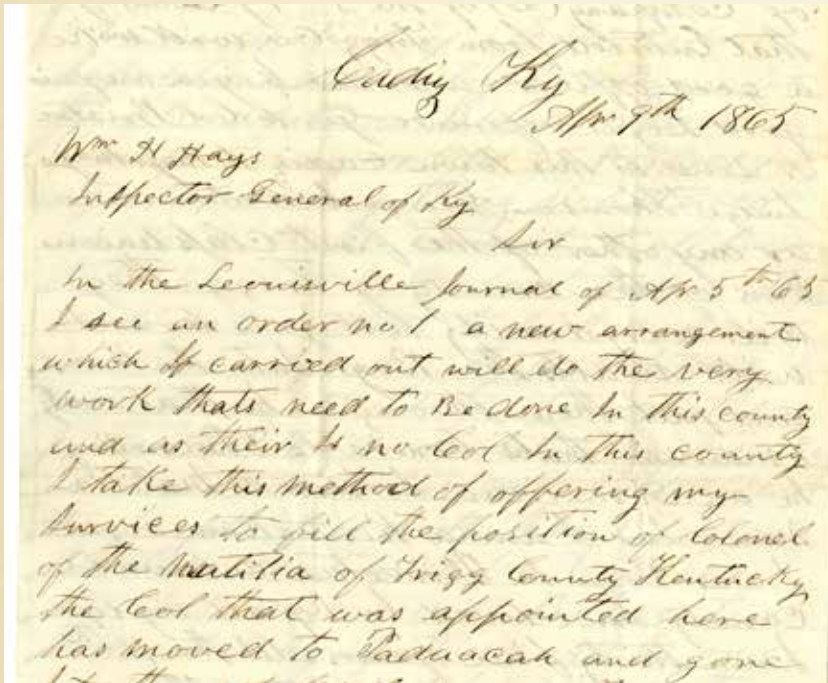 Cadiz Ky
Apr 9th 1865
Wm H Hays
Inspector General of Ky
Sir
In the Leouisville Journal of Apr 5th 65
I see an order no 1 a new arrangement
which If carried out will do the very
work thats need to Be done In this county
and as their Is no Col In this county
I take this method of offering my
survices to fill the position of Colonel
of the Mutilia of Trigg County Kentucky
the Col that was appointed here
has moved to Paduacah and gone